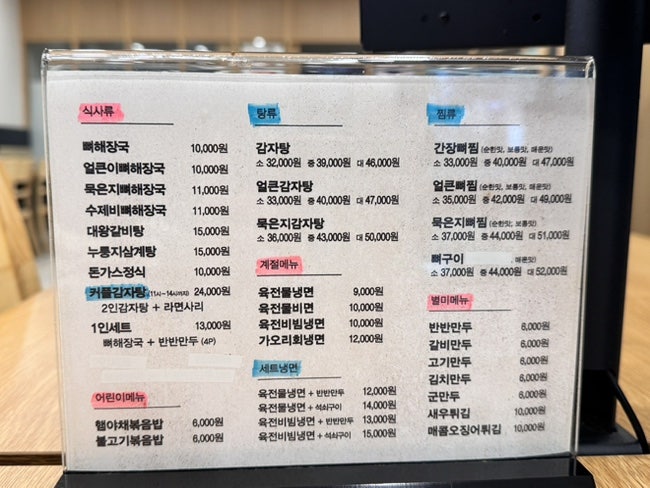 식사류
뼈해장국 10,000원
얼큰이뼈해장국 10,000원
묵은지뼈해장국 11,000원
수제비뼈해장국 11,000원
대왕갈비탕 15,000원
누룽지삼계탕 15,000원
돈가스정식 10,000원
커플감자탕 (11시~14시까지) 24,000원
2인감자탕 + 라면사리
1인세트 13,000원
뼈해장국 + 반반만두 (4P)
어린이메뉴
햄야채볶음밥 6,000원
불고기볶음밥 6,000원
탕류
감자탕
소 32,000원 중 39,000원 대 46,000원
얼큰감자탕
소 33,000원 중 40,000원 대 47,000원
묵은지감자탕
소 36,000원 중 43,000원 대 50,000원
계절메뉴
육전물냉면 9,000원
육전물비면 10,000원
육전비빔냉면 10,000원
가오리회냉면 12,000원
세트냉면
육전물냉면 + 반반만두 12,000원
육전물냉면 + 석쇠구이 14,000원
육전비빔냉면 + 반반만두 13,000원
육전비빔냉면 + 석쇠구이 15,000원
찜류
간장뼈찜 (순한맛, 보통맛, 매운맛)
소 33,000원 중 40,000원 대 47,000원
얼큰뼈찜 (순한맛, 보통맛, 매운맛)
소 35,000원 중 42,000원 대 49,000원
묵은지뼈찜 (순한맛, 보통맛, 매운맛)
소 37,000원 중 44,000원 대 51,000원
뼈구이 , 매운맛)
소 37,000원 중 44,000원 대 52,000원
별미메뉴
반반만두 6,000원
갈비만두 6,000원
고기만두 6,000원
김치만두 6,000원
군만두 6,000원
새우튀김 10,000원
매콤오징어튀김 10,000원